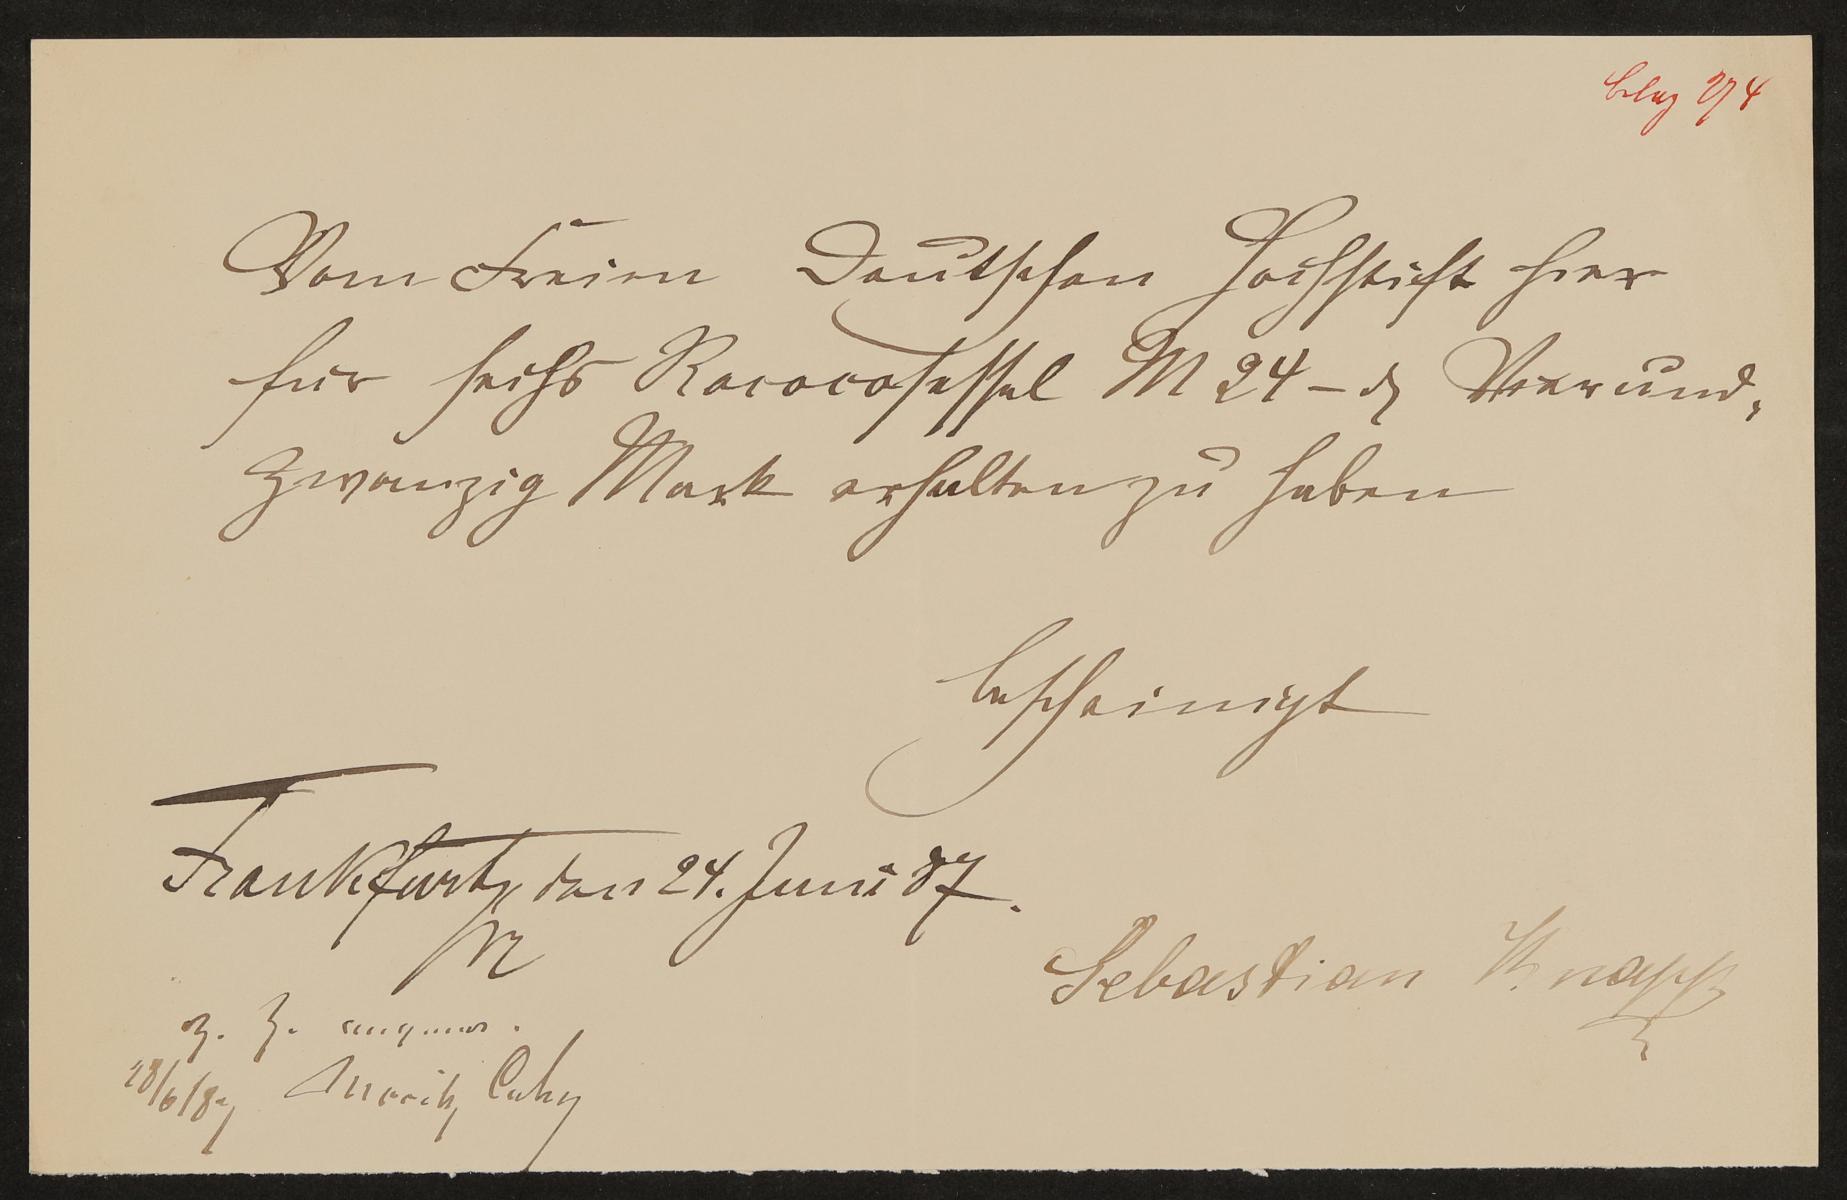 beleg 274
Vom Freien Deutschen Hochstift hier
für sechs Rococosessel M 24 – ₰ Vierund-
zwanzig Mark erhalten zu haben
bescheinigt
Frankfurt, den 24. Juni 87.
M
Sebastian Knapp
z. Z. angew.
28/6/87 Moritz Cahn